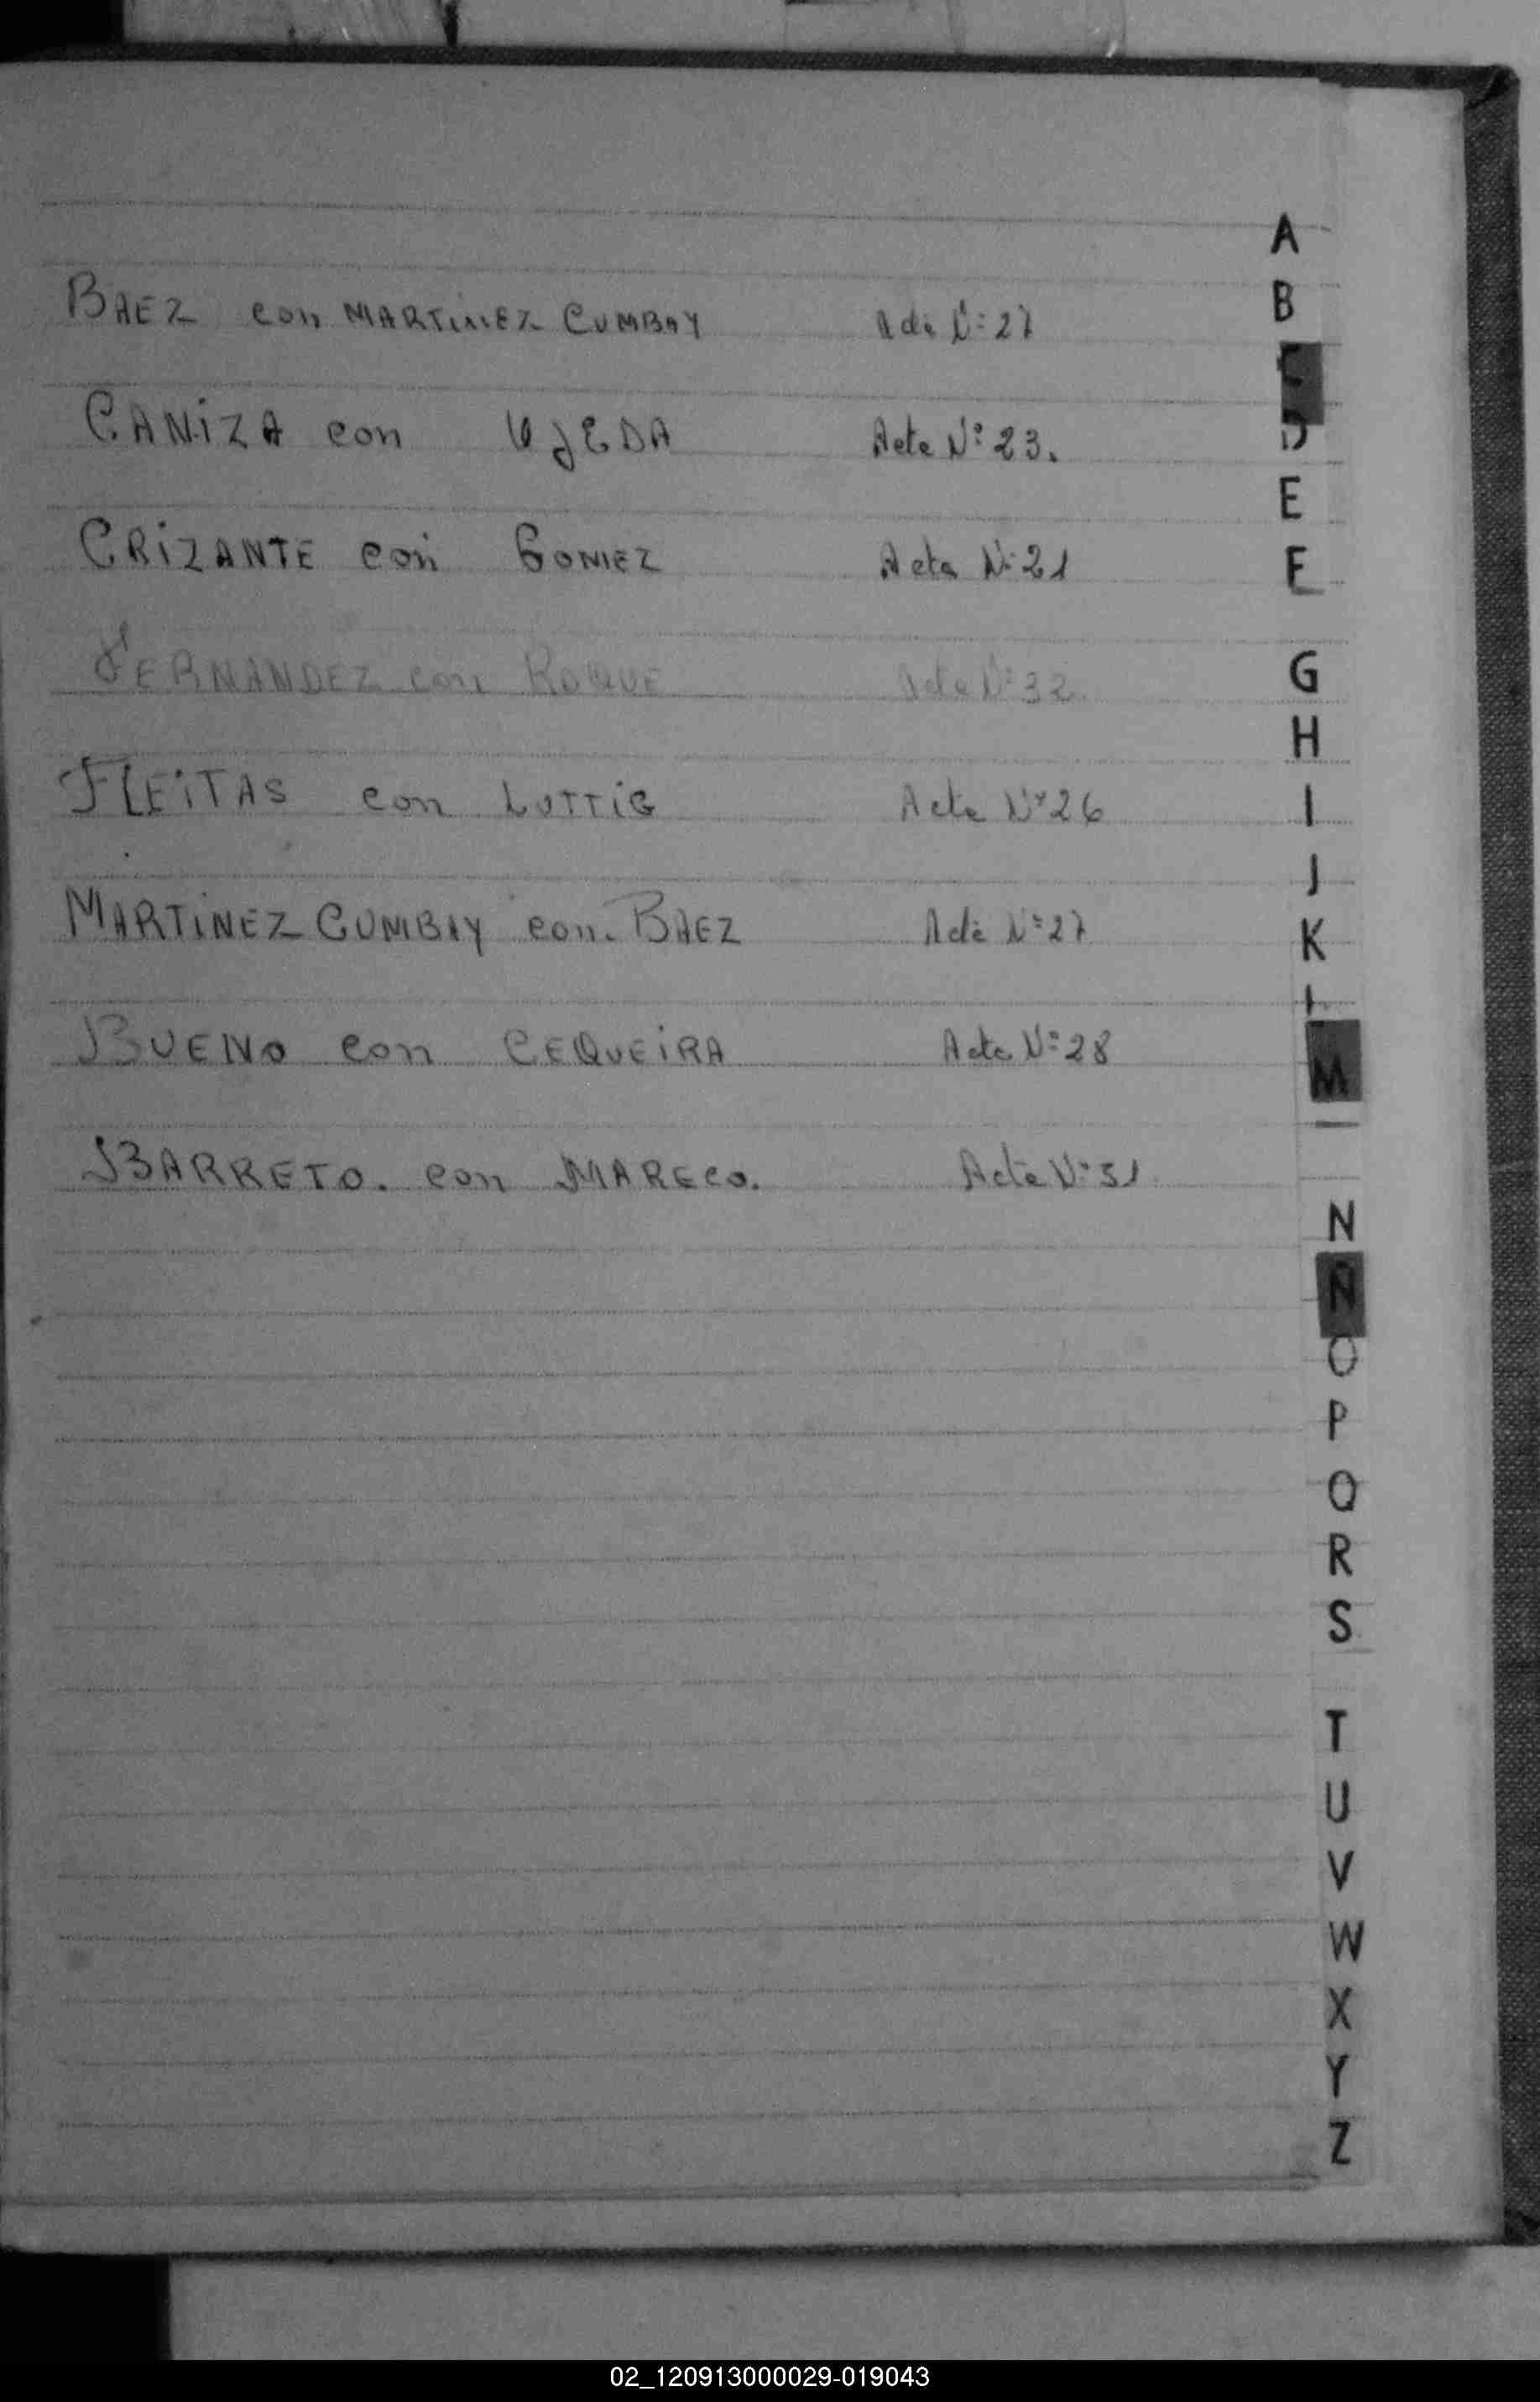 BAEZ con MARTINEZ CUMBAY Acta Nº 27
CANIZA con OJEDA Acta Nº 23.
CRIZANTE con GOMEZ Acta Nº 21
FERNANDEZ con ROQUE Acta Nº 32
FLEITAS con LUTTIG Acta Nº 26
MARTINEZ CUMBAY con BAEZ Acta Nº 27
BUENO con CEQUEIRA Acta Nº 28
BARRETO. con MARECO. Acta Nº 31
A
B
C
D
E
F
G
H
I
J
K
L
M
N
Ñ
O
P
Q
R
S
T
U
V
W
X
Y
Z
02_120913000029-019043